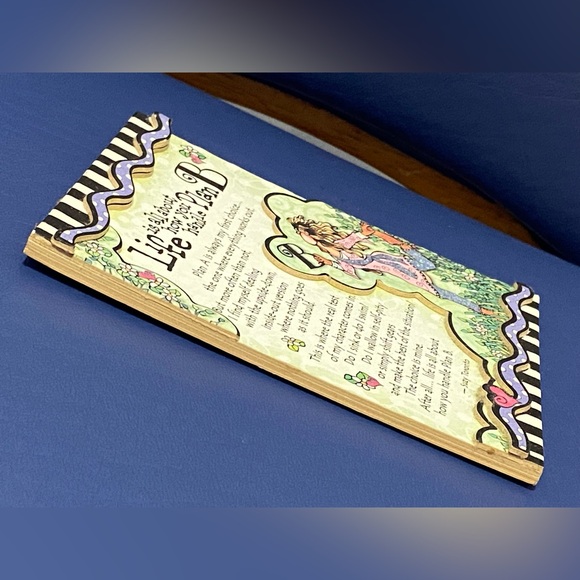 Life is all about
how you
handle Plan B
Plan A is always my first choice...
the one where everything works out.
But more often than not,
I find myself dealing
with the upside-down,
inside-out version
where nothing goes
as it should.
This is where the real test
of my character comes in.
Do I sink or do I swim?
Do I wallow in self-pity
or simply shift gears
and make the best of the situation?
The choice is mine.
After all... life is all about
how you handle Plan B.
— Suzy Toronto